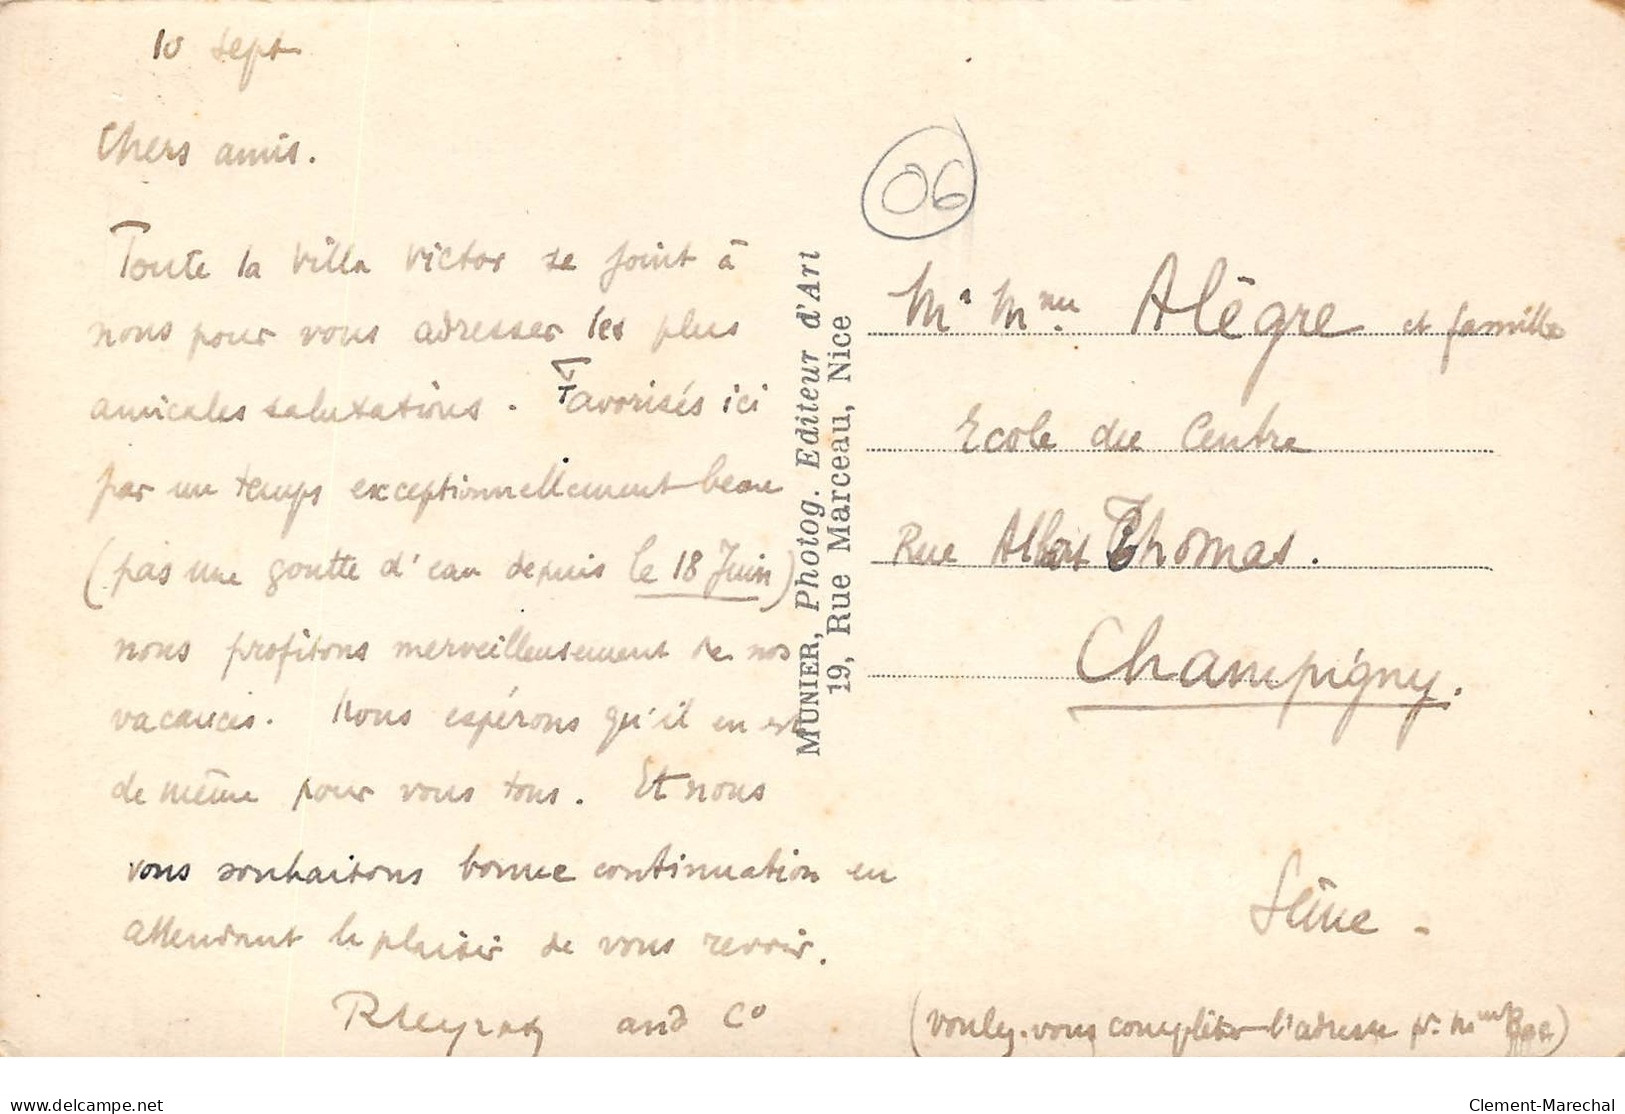 10 sept
Chers amis.
Toute la villa Victor se joint à
nous pour vous adresser les plus
amicales salutations. Favorisés ici
par un temps exceptionnellement beau
(pas une goutte d'eau depuis le 18 Juin)
nous profitons merveilleusement de nos
vacances. Nous espérons qu'il en est
de même pour vous tous. Et nous
vous souhaitons bonne continuation en
attendant le plaisir de vous revoir.
and Co
MUNIER, Photog. Editeur d'Art
19, Rue Marceau, Nice
06
Mr Mme Alègre et famille
Ecole du Centre
Rue Albert Thomas.
Champigny.
Seine -
(voulez-vous compléter l'adresse pr. Mme)
delcampe.net
Clement-Marechal